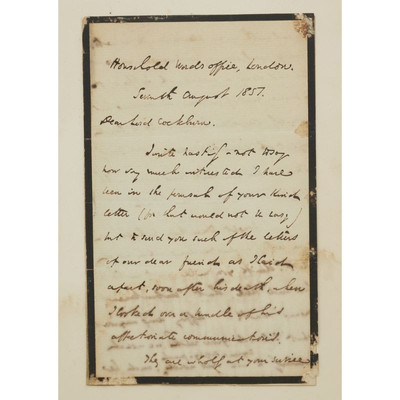 Household Words office, London.
Seventh August 1851.
Dear Lord Cockburn.
I write hastily - not to say
how very much interested I have
been in the perusal of your kind
letter (for that would not be easy)
but to send you such of the letters
of our dear friend as I laid
apart, soon after his death, when
I looked over a bundle of his
affectionate communications.
They are wholly at your service